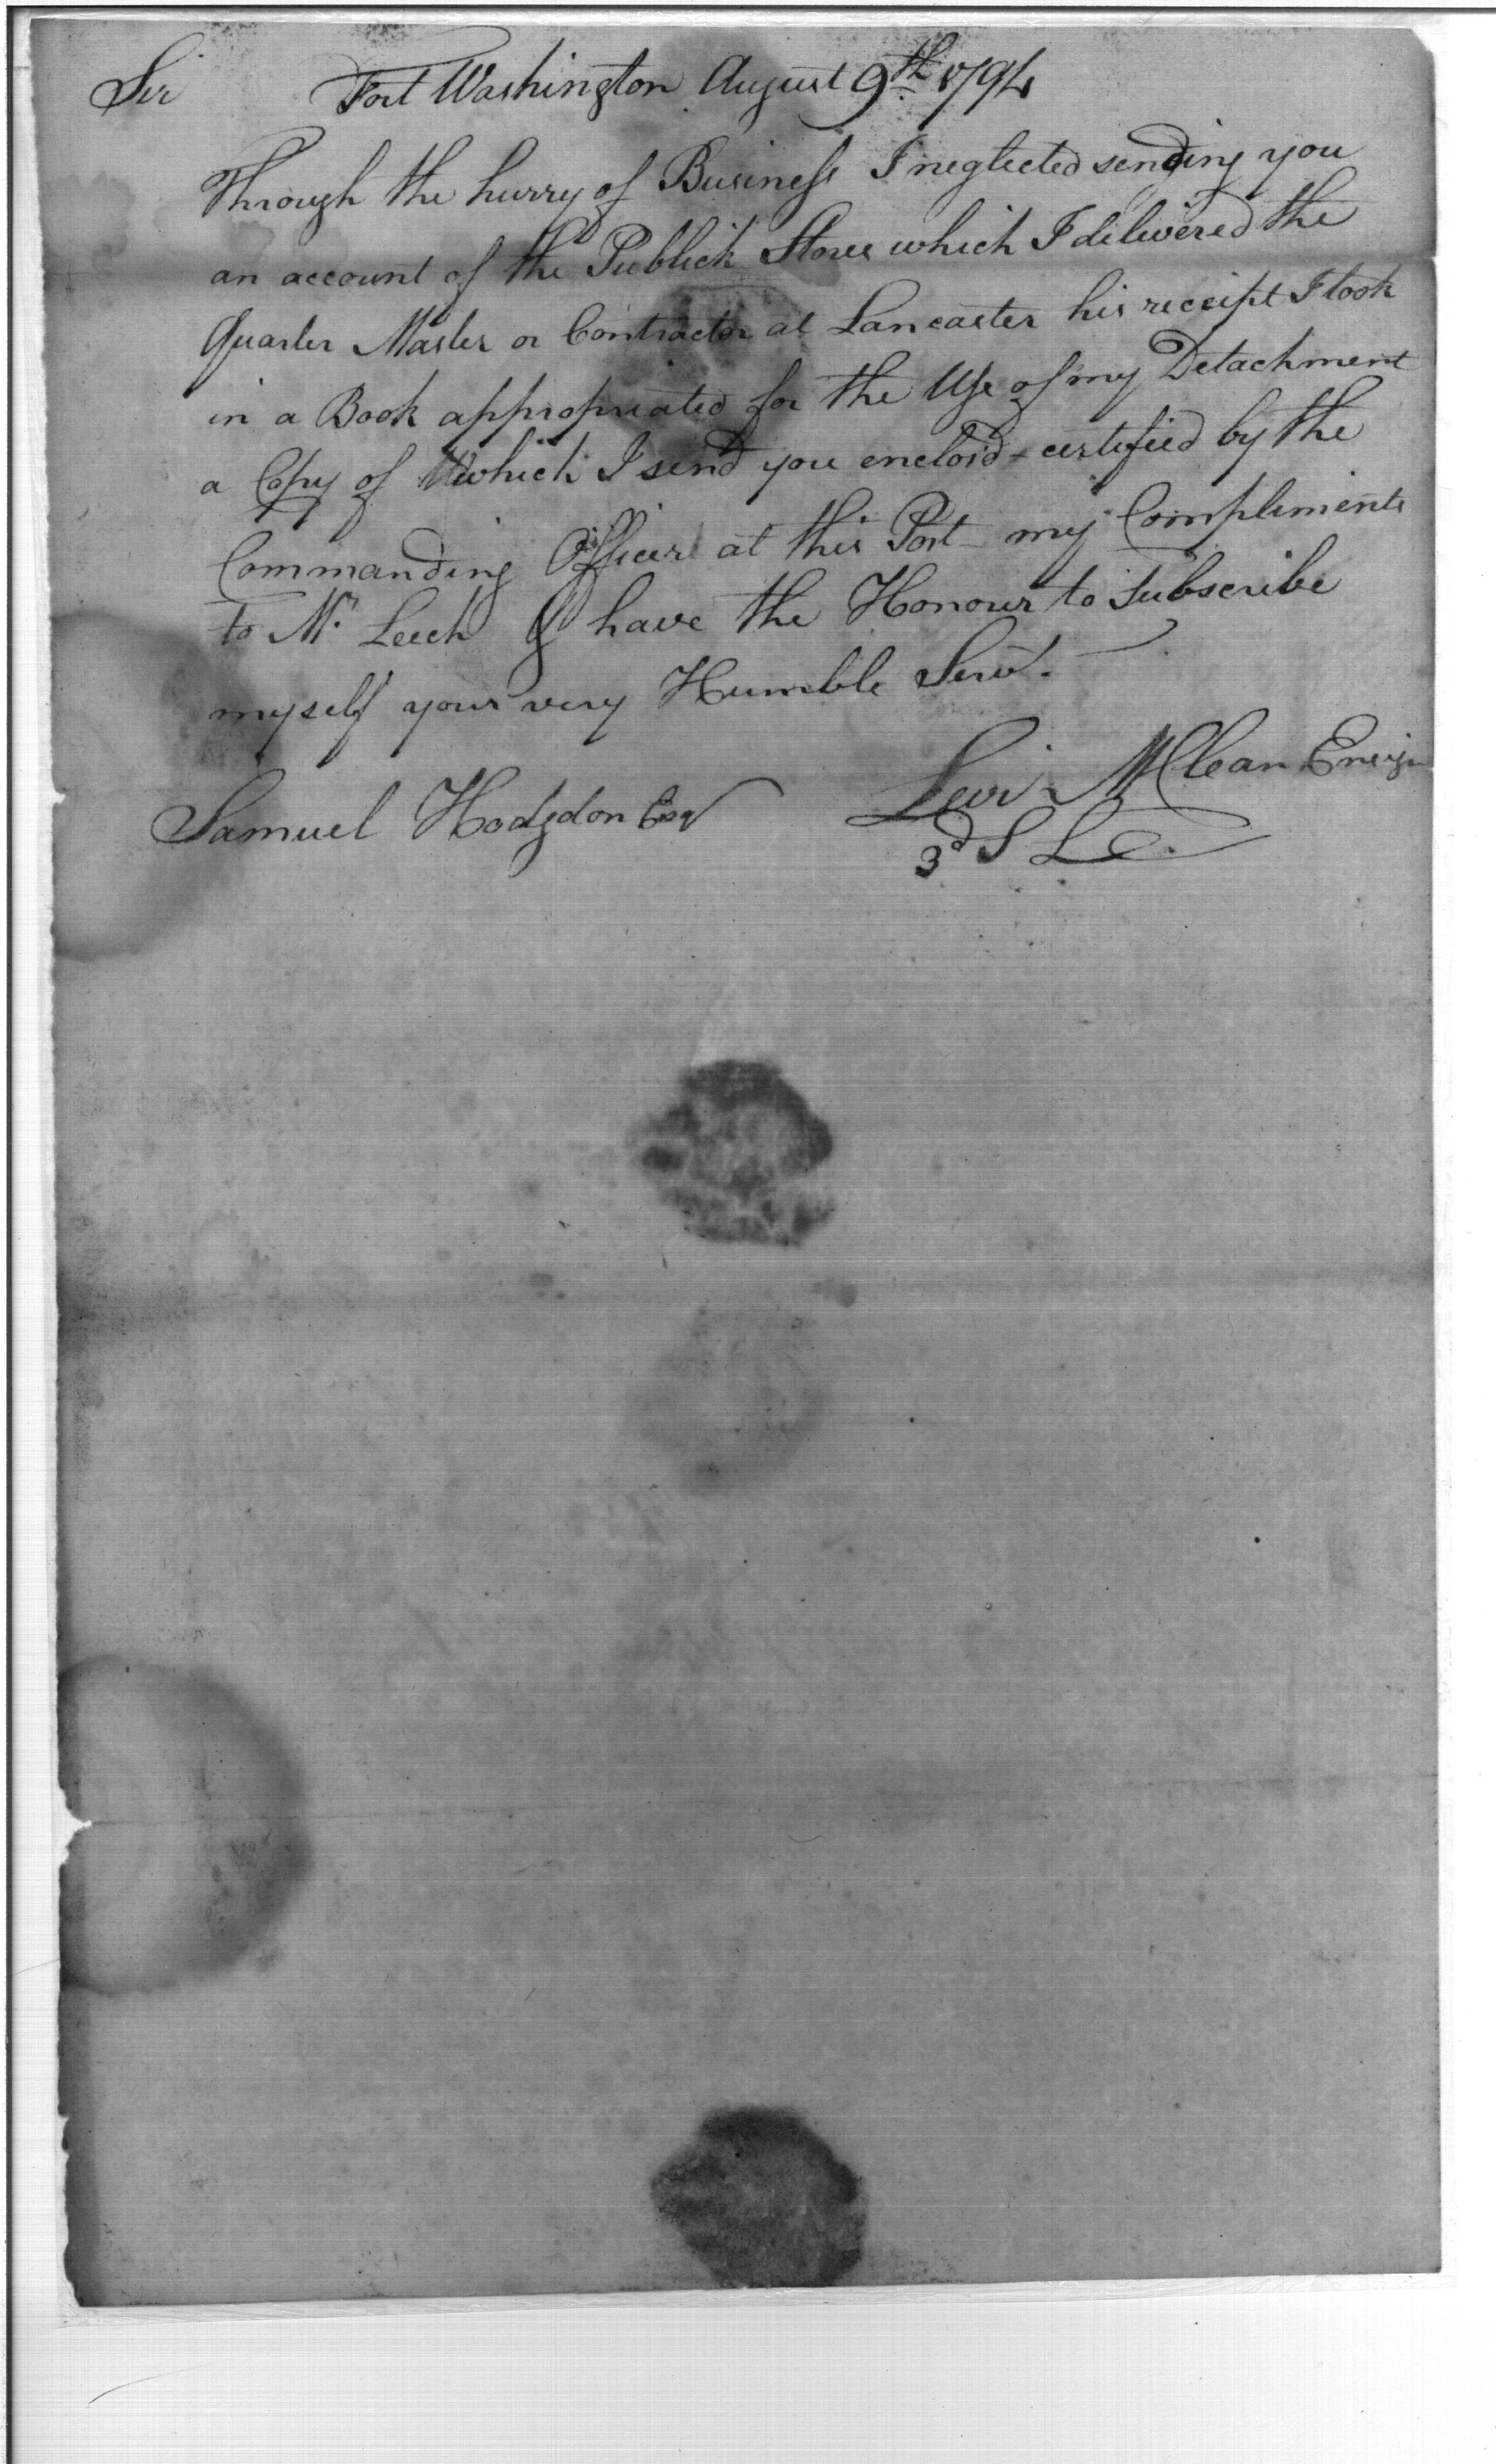 Sir Fort Washington August 9th 1794
Through the hurry of Business I neglected sending you
an account of the Publick Stores which I delivered the
Quarter Master or Contractor at Lancaster his receipt I took
in a Book appropriated for the Use of my Detachment
a Copy of which I send you enclos'd - certified by the
Commanding Officer at this Post - my Compliments
to Mr. Leech I have the Honour to Subscribe
myself your very Humble Servt.
Levi McClean Ensign
Samuel Hodgdon Esqr
3d S L